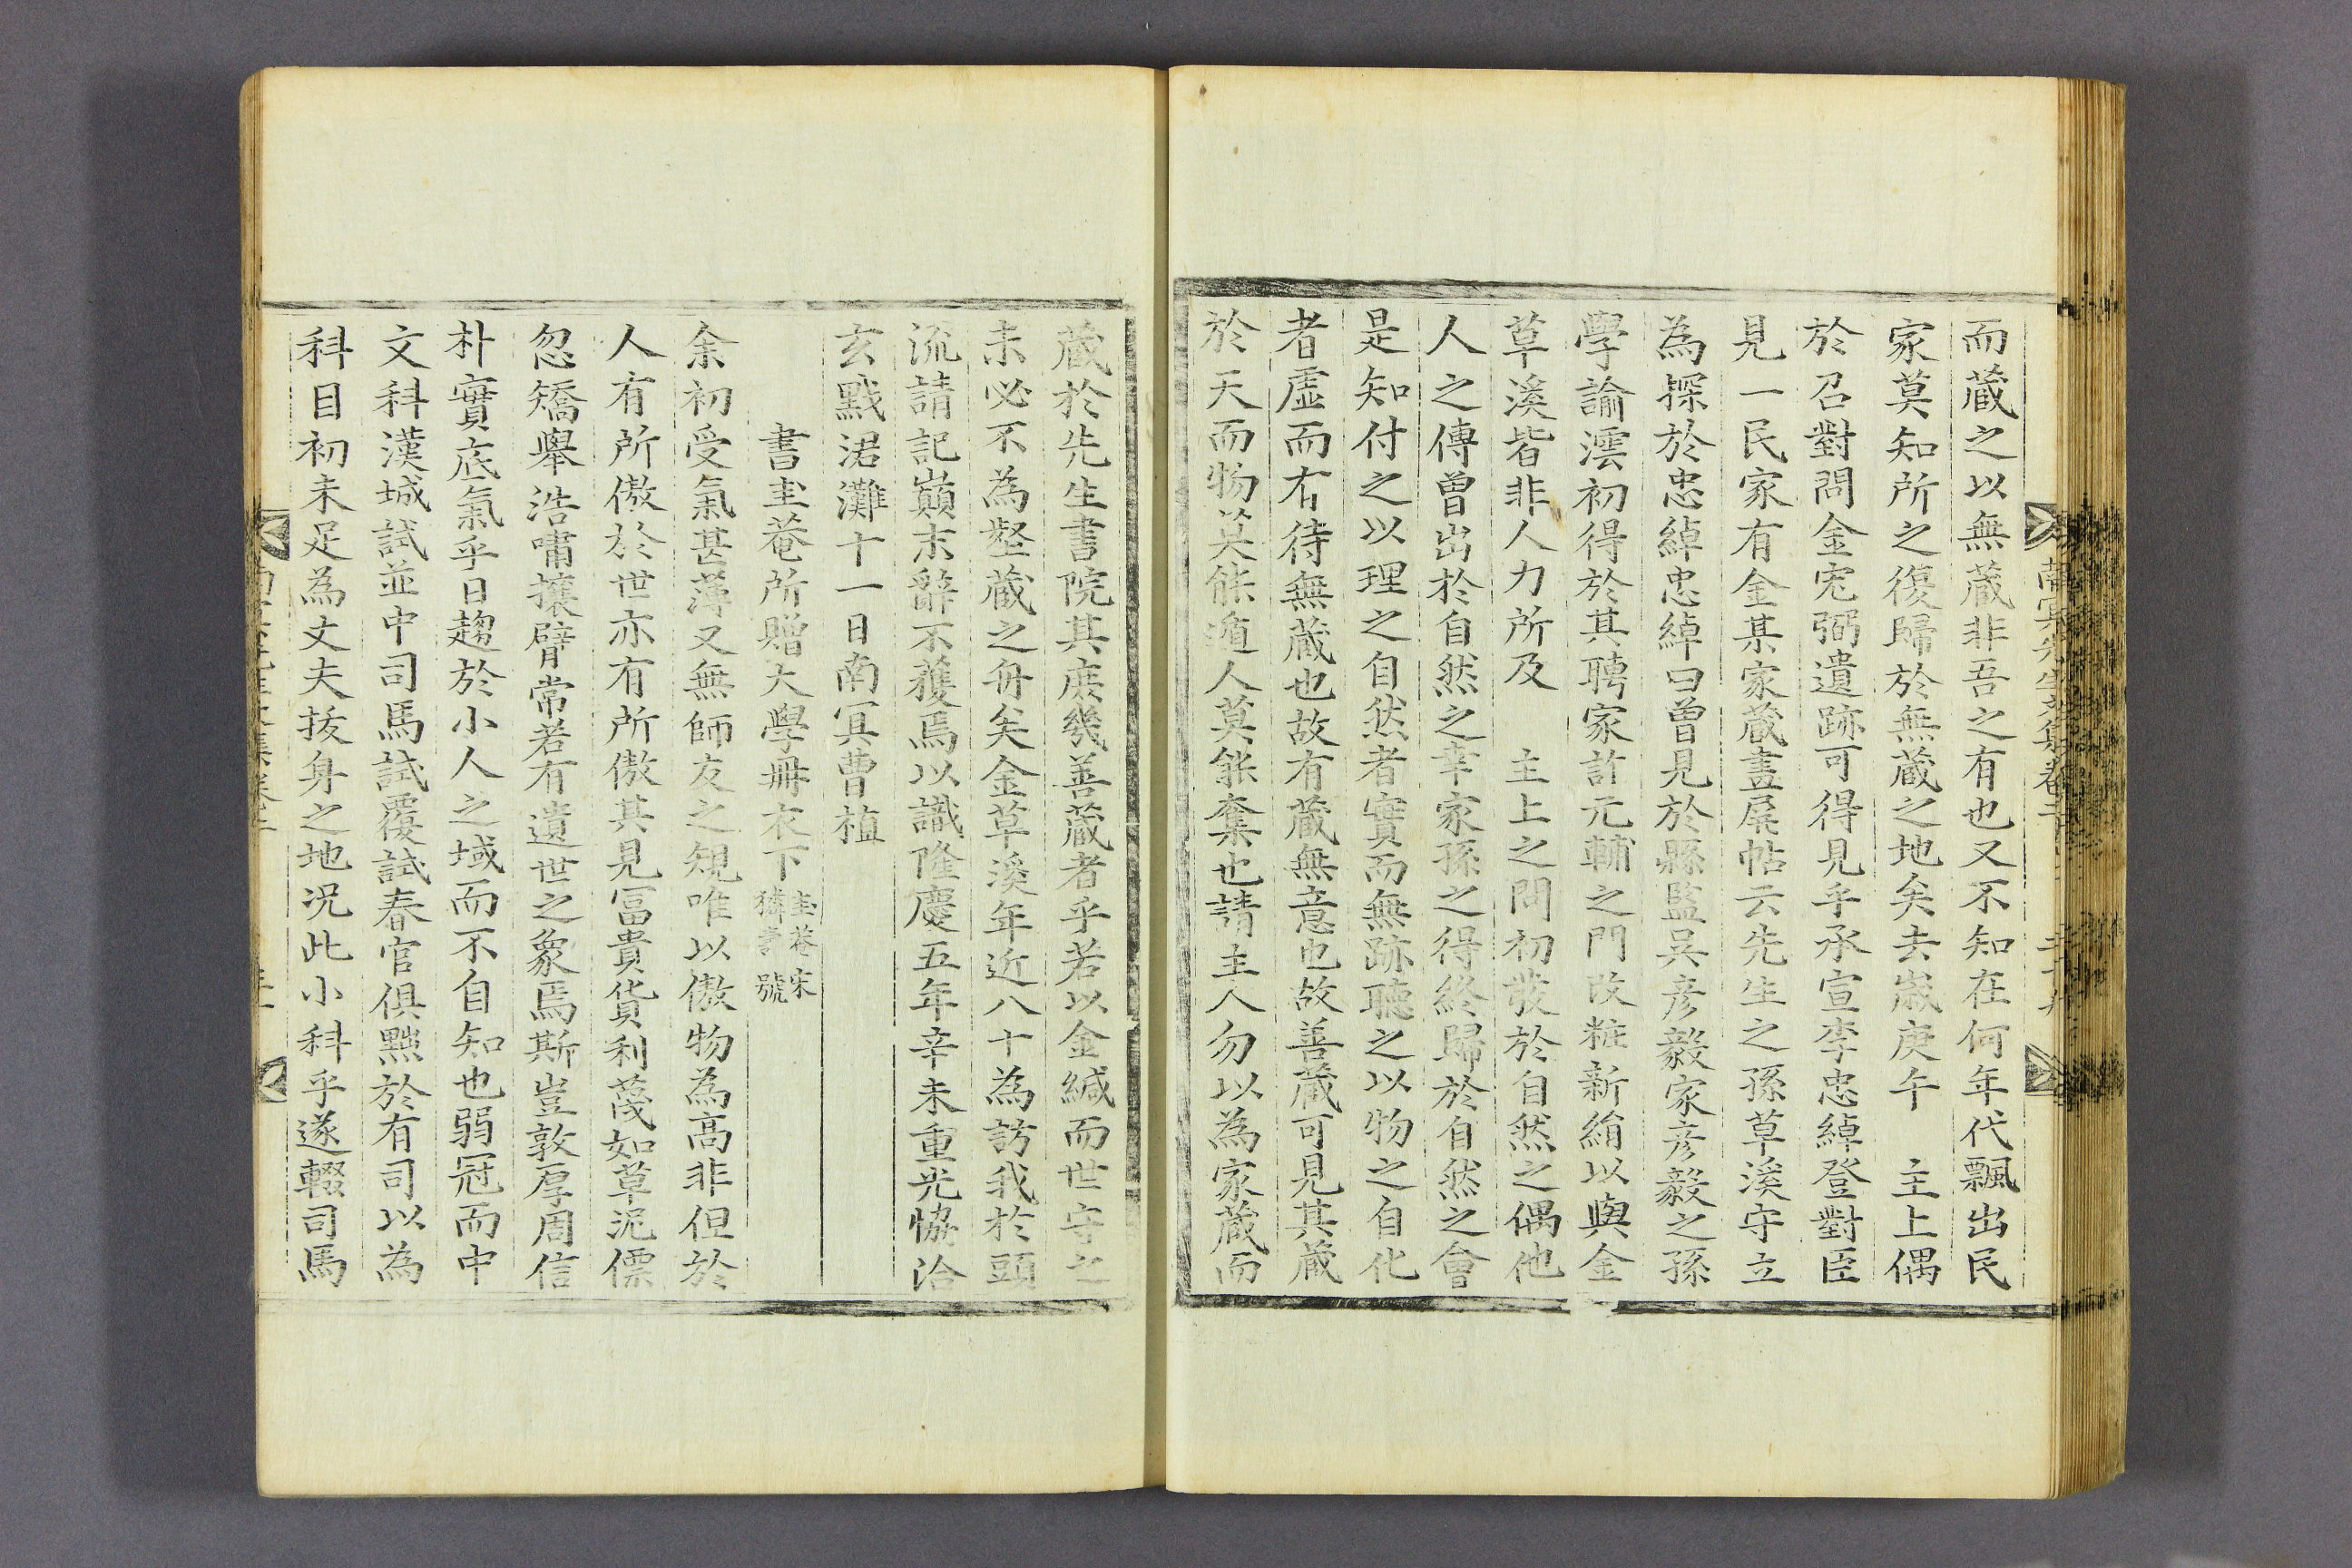 而蔵之以無蔵非吾之有也又不知在何年代飄出民
家莫知所之復歸於無蔵之地矣去歳庚午 主上偶
於召對問金宏弼遺跡可得見乎承宣李忠綽登對臣
見一民家有金某家蔵畫屛帖云先生之孫草溪守立
為探於忠綽忠綽曰曽見於縣監吳彦毅家彦毅之孫
學諭澐初得於其聘家許元輔之門改粧新絹以與金
草溪皆非人力所及 主上之問初發於自然之偶他
人之傳曽出於自然之幸家孫之得終歸於自然之會
是知付之以理之自然者實而無跡聴之以物之自化
者虛而有待無蔵也故有蔵無意也故善蔵可見其蔵
於天而物莫能遁人莫能奪也請主人勿以為家蔵而
南冥先生文集卷二
蔵於先生書院其庶幾善蔵者乎若以金緘而世守之
未必不為壑蔵之舟矣金草溪年近八十為訪我於頭
流請記巔末辭不獲焉以識隆慶五年辛未重光恊洽
玄黓涒灘十一日南冥曹植
書圭菴所贈大學冊衣下 圭菴宋
獜壽號
余初受氣甚薄又無師友之規唯以傲物為高非但於
人有所傲於世亦有所傲其見冨貴貨利蔑如草泥僄
忽矯舉浩嘯攘臂常若有遺世之象焉斯豈敦厚周信
朴實底氣乎日趨於小人之域而不自知也弱冠而中
文科漢城試並中司馬試覆試春官俱黜於有司以為
科目初未足為丈夫拔身之地況此小科乎遂輟司馬